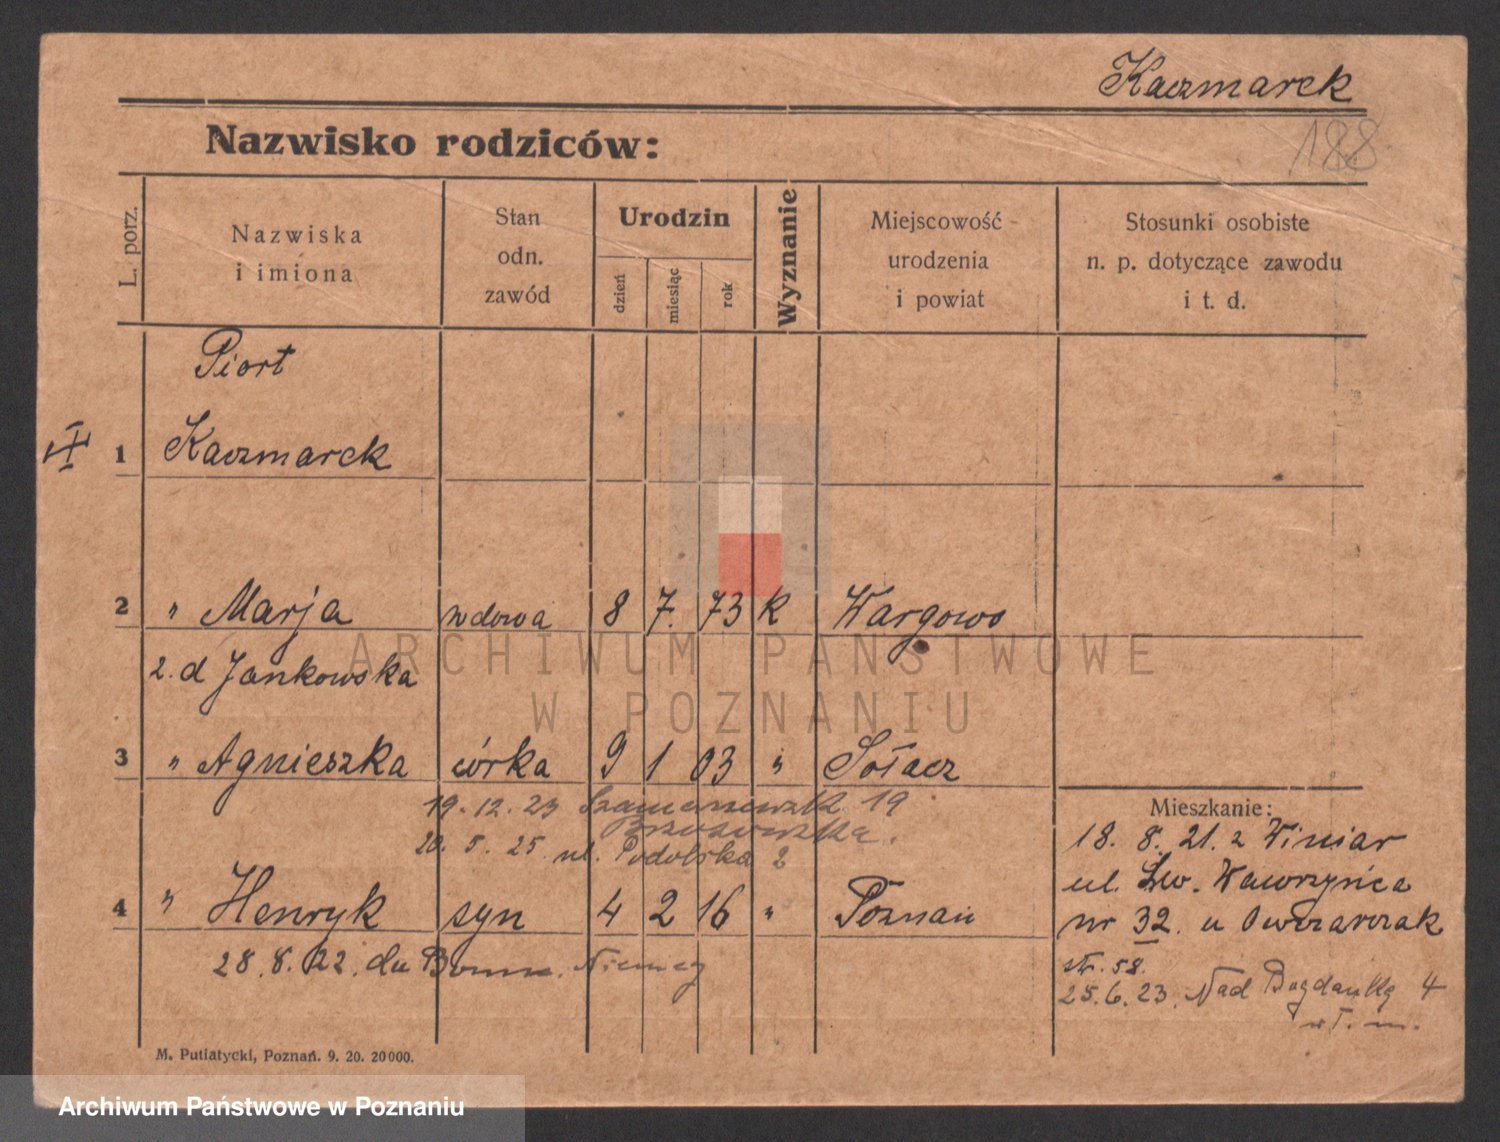 Kaczmarek
Nazwisko rodziców:
188
L. porz.
Nazwiska
i imiona
Stan
odn.
zawód
Urodzin
dzień
miesiąc
rok
Wyznanie
Miejscowość
urodzenia
i powiat
Stosunki osobiste
n. p. dotyczące zawodu
i t. d.
Piort
1 Kaczmarek
2 " Marja wdowa 8 7. 73 k Wargowo
2. d Jankowska
3 " Agnieszka córka 9 1 03 " Sołacz
19. 12. 23 19
Brzozowska.
20. 5. 25 ul. Podolska 2
4 " Henryk syn 4 2 16 " Poznań
28. 8. 22. du Niemcy
Mieszkanie:
18. 8. 21. z Winiar
ul. Św. Wawrzyńca
nr 32. u Owczarczak
str. 58.
25. 6. 23. Nad Bogdanką 4
w T. m.
M. Putiatycki, Poznań. 9. 20. 20000.
ARCHIWUM PAŃSTWOWE
W POZNANIU
Archiwum Państwowe w Poznaniu